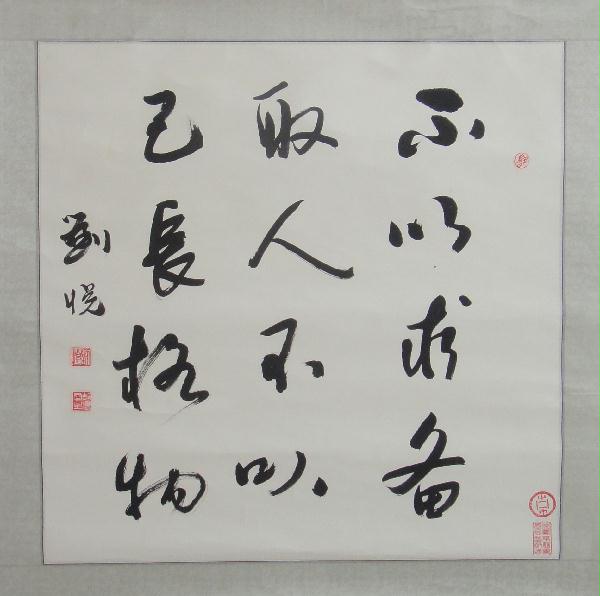 不以求备
取人不以
己長格物
劉悦